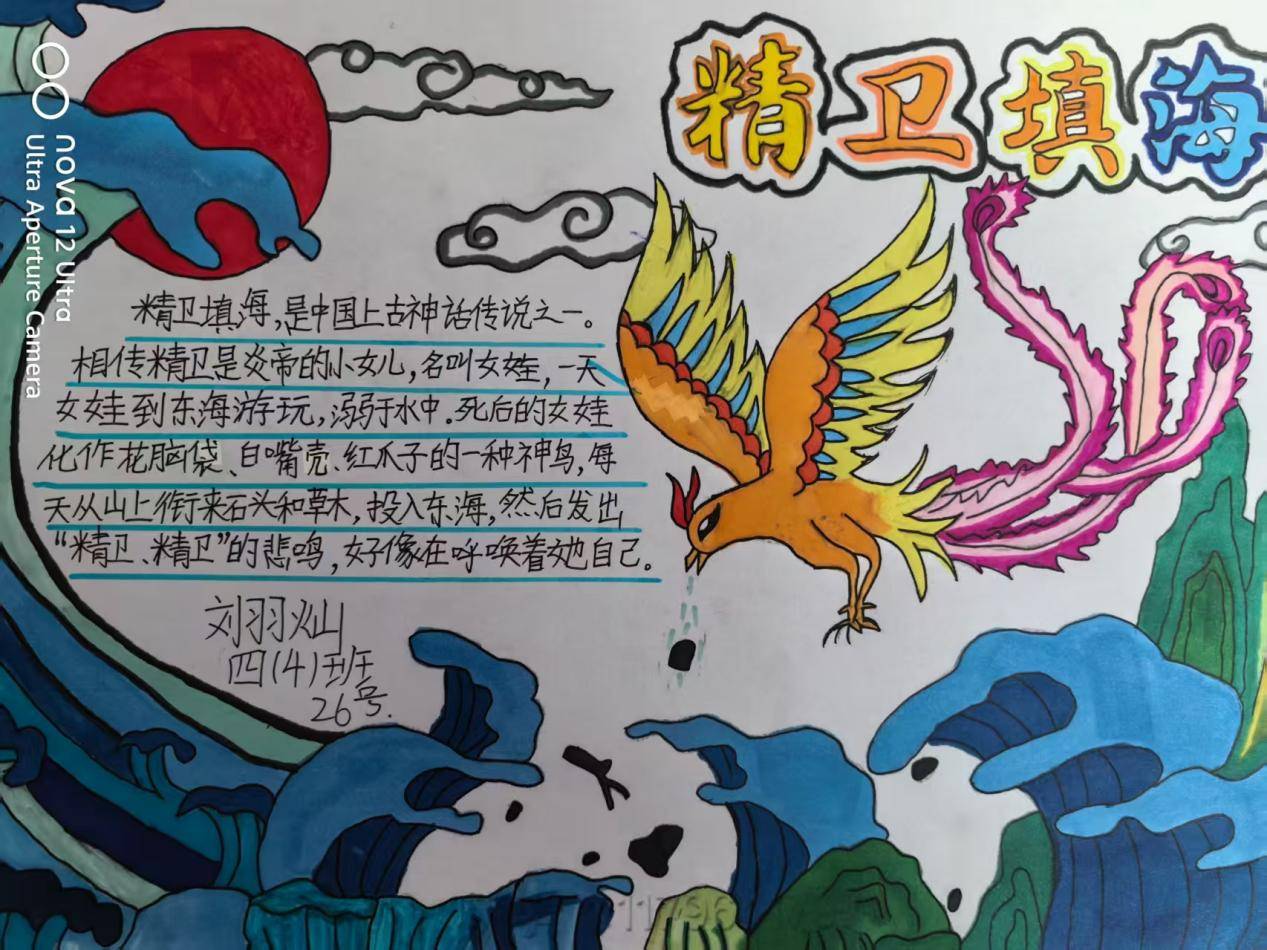 精卫填海
精卫填海,是中国上古神话传说之一。
相传精卫是炎帝的小女儿,名叫女娃,一天
女娃到东海游玩,溺于水中.死后的女娃
化作花脑袋、白嘴壳、红爪子的一种神鸟,每
天从山上衔来石头和草木,投入东海,然后发出
“精卫、精卫”的悲鸣,好像在呼唤着她自己。
刘羽灿
四(4)班
26号.
nova 12 Ultra
Ultra Aperture Camera